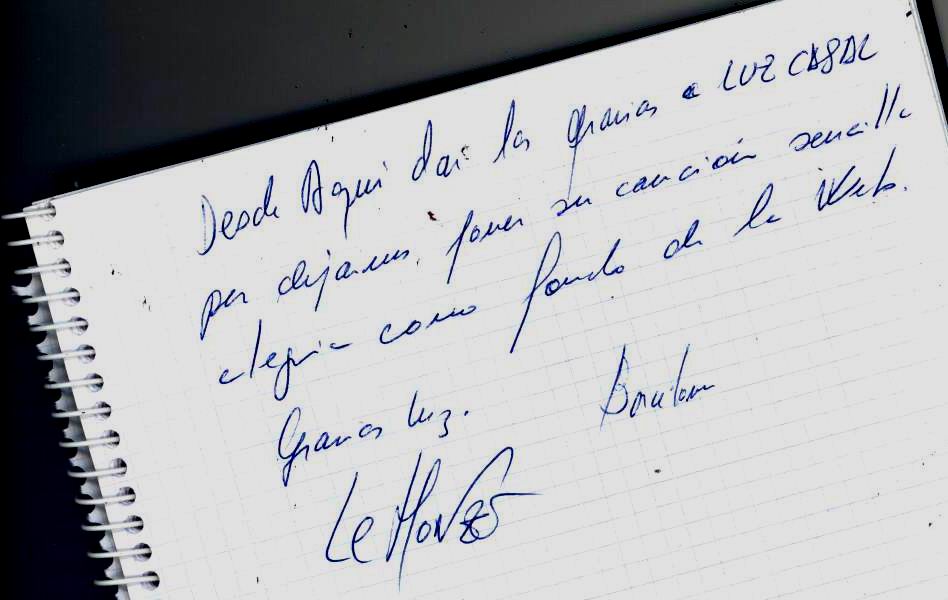 Desde Aqui dar las gracias a LUZ CASAL
por dejarnos poner su canción sencilla
alegria como fondo de la Web.
Gracias Luz.
Le Monzó